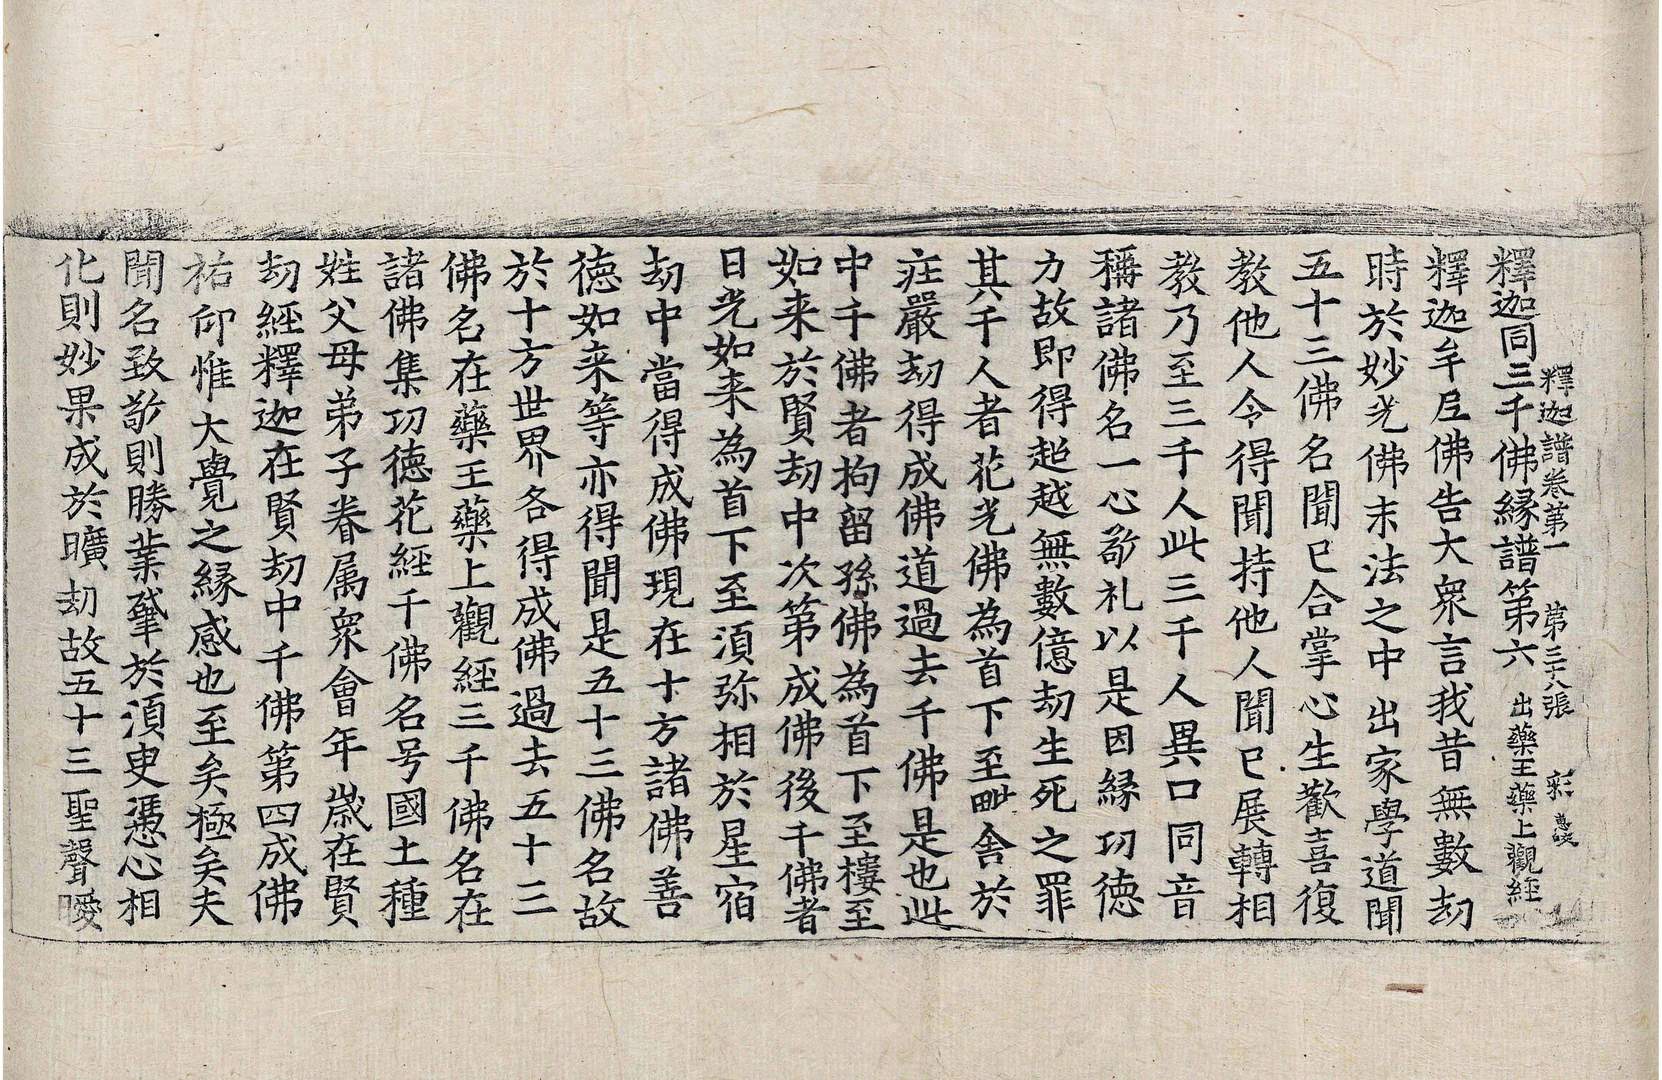 釋迦譜卷第一 第三十八張 彩
釋迦同三千佛縁譜第六 出藥王藥上觀經
釋迦牟尼佛告大衆言我昔無數劫
時於妙光佛末法之中出家學道聞
五十三佛名聞已合掌心生歡喜復
教他人令得聞持他人聞已展轉相
教乃至三千人此三千人異口同音
稱諸佛名一心敬礼以是因縁功德
力故即得超越無數億劫生死之罪
其千人者花光佛為首下至毗舍於
庄嚴劫得成佛道過去千佛是也此
中千佛者拘留孫佛為首下至樓至
如来於賢劫中次第成佛後千佛者
日光如来為首下至須弥相於星宿
劫中當得成佛現在十方諸佛善
德如来等亦得聞是五十三佛名故
於十方世界各得成佛過去五十三
佛名在藥王藥上觀經三千佛名在
諸佛集功德花經千佛名号國土種
姓父母弟子眷属衆會年歳在賢
劫經釋迦在賢劫中千佛第四成佛
祐仰惟大覺之縁感也至矣極矣夫
聞名致敬則勝業肇於須臾憑心相
化則妙果成於曠劫故五十三聖聲曖